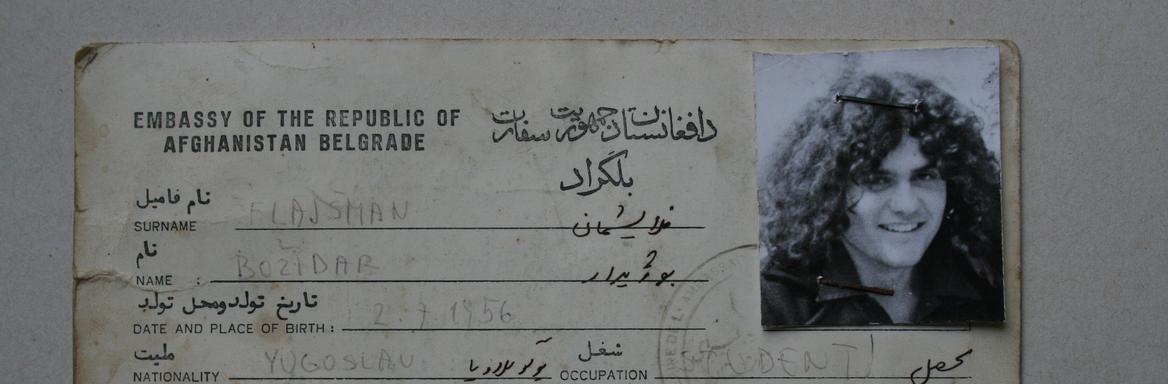 EMBASSY OF THE REPUBLIC OF
AFGHANISTAN BELGRADE
دافغانستان جمهوریت سفارت
بلگراد
نام فامیل
SURNAME FLAJŠMAN فلایشمان
نام
NAME : BOŽIDAR بوژیدار
تاریخ تولد ومحل تولد
DATE AND PLACE OF BIRTH : 2. 7 1956
ملیت
NATIONALITY YUGOSLAV
شغل
OCCUPATION STUDENT محصل